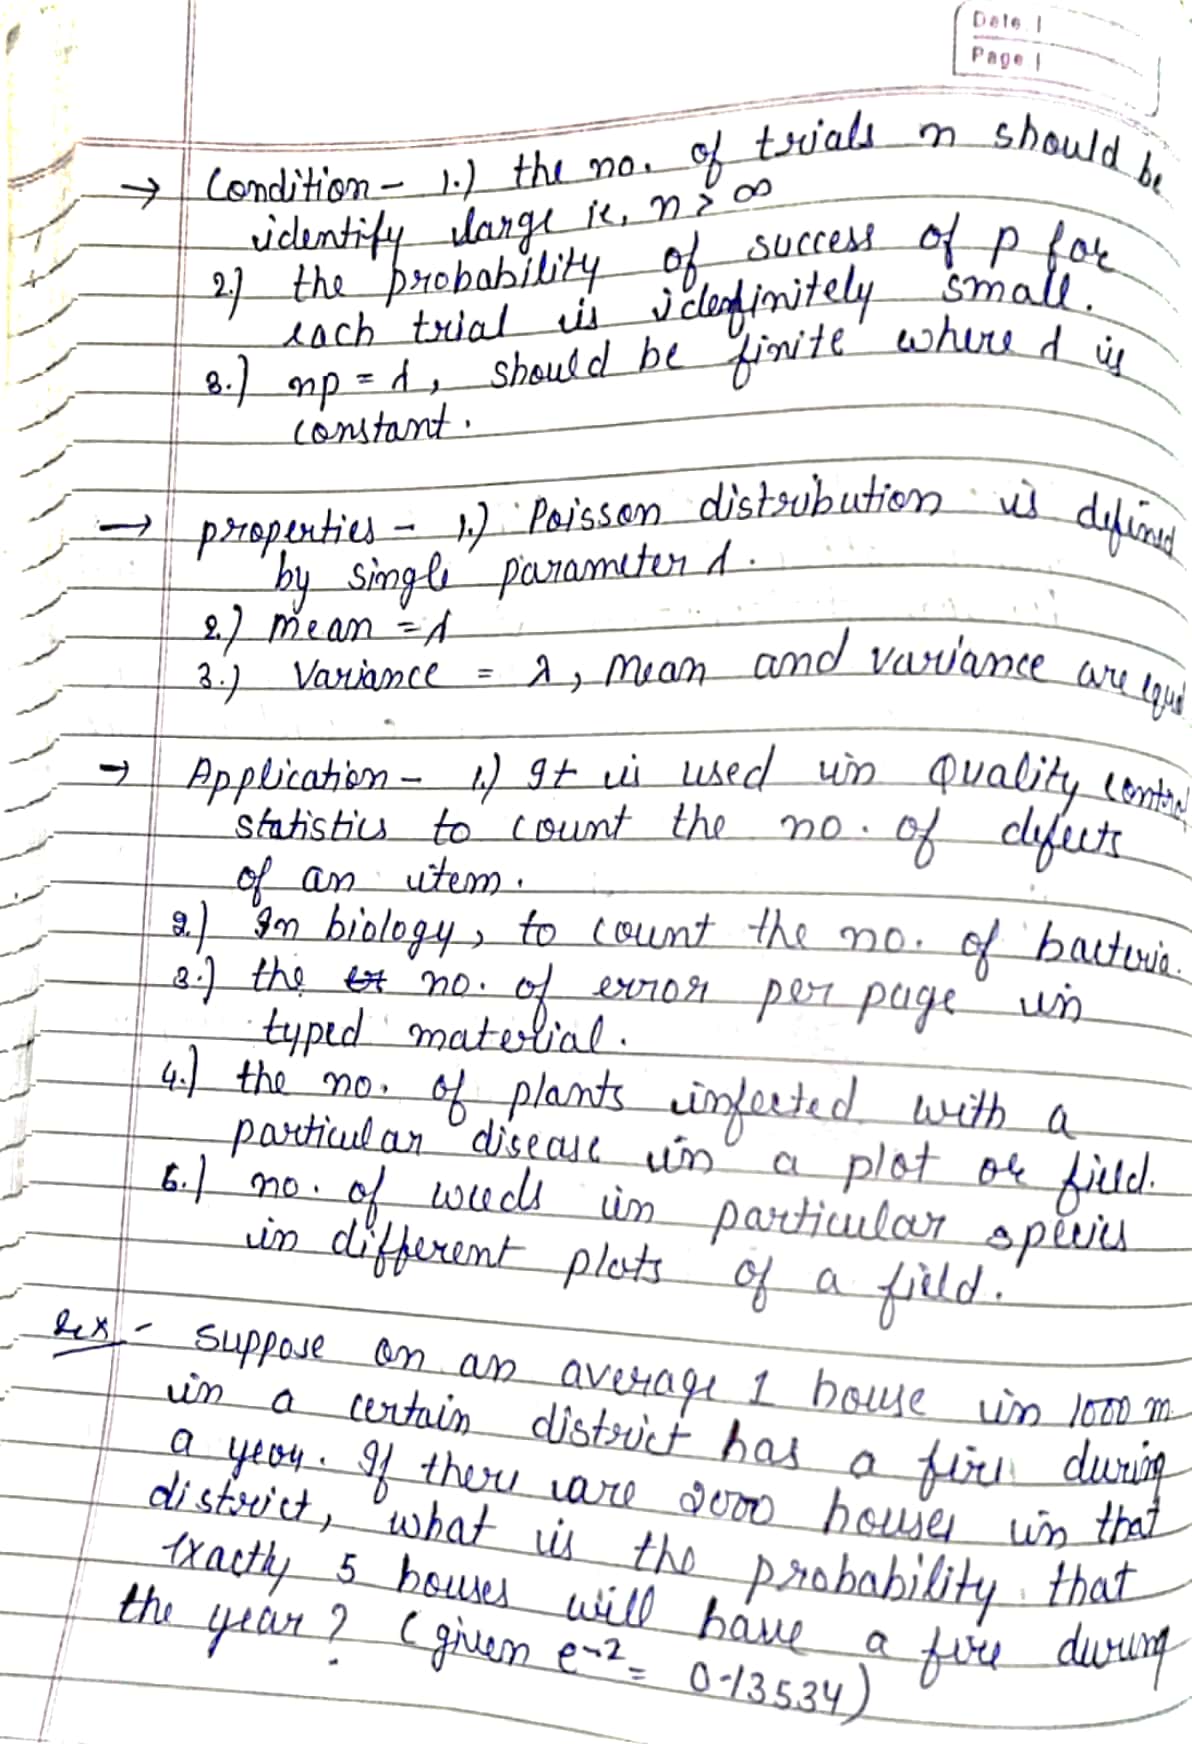 Date
Page
→ Condition - 1.) the no. of trials n should be
identify large ie, n > ∞
2.) the probability of success of p for
each trial is idenfinitely small.
3.) np = λ, should be finite where λ is
constant.
→ properties - 1.) Poisson distribution is defined
by single parameter λ.
2.) Mean = λ
3.) Variance = λ, Mean and variance are equal
→ Application - 1.) It is used in Quality control
statistics to count the no. of defects
of an item.
2.) In biology, to count the no. of bacteria.
3.) the no. of error per page in
typed material.
4.) the no. of plants infected with a
particular disease in a plot or field.
5.) no. of weeds in particular species
in different plots of a field.
Ex - Suppose on an average 1 house in 1000 m
in a certain district has a fire during
a year. If there are 2000 houses in that
district, what is the probability that
exactly 5 houses will have a fire during
the year? (given e-2 = 0.13534)